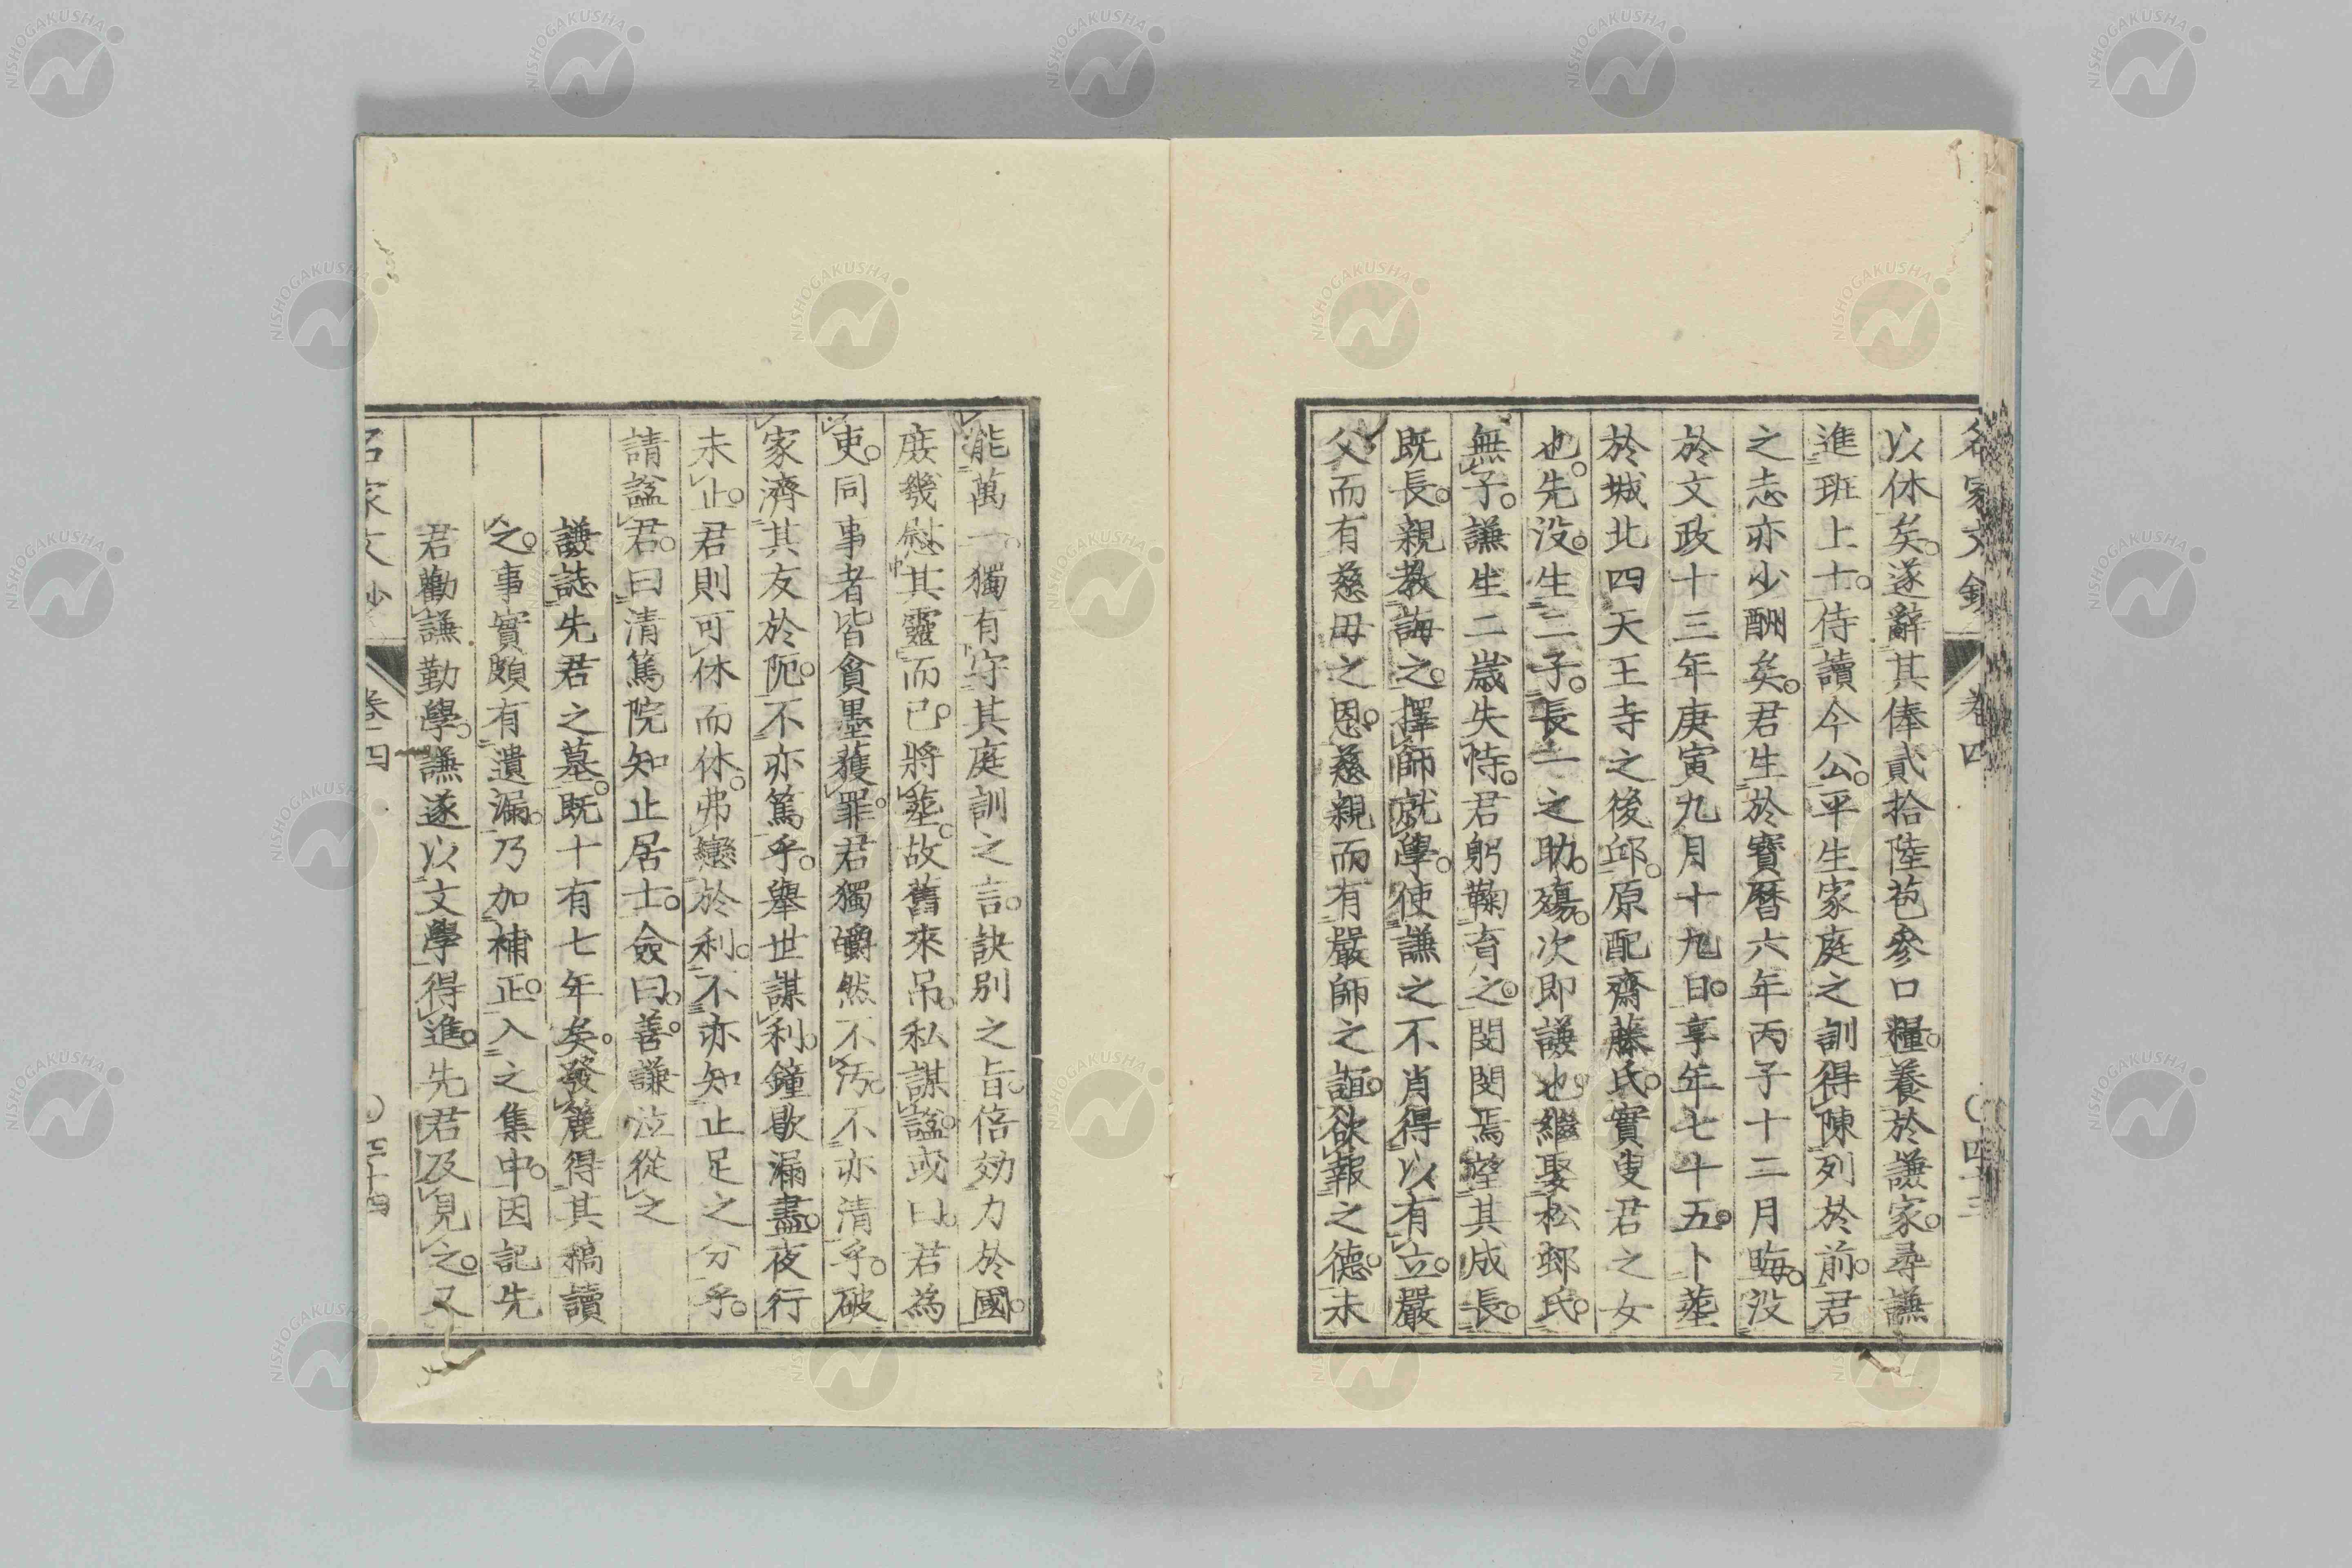 名家文鈔 卷四 〇四十三
以休矣。遂辭其俸貳拾陸苞參口糧。養於謙家。尋謙
進班上士。侍讀今公。平生家庭之訓得陳列於前。君
之志亦少酬矣。君生於寶曆六年丙子十二月晦。沒
於文政十三年庚寅九月十九日。享年七十五。卜葬
於城北四天王寺之後邱。原配齋藤氏。實叟君之女
也。先沒。生二子。長之助。殤。次即謙也。繼娶松邨氏。
無子。謙生二歲失恃。君躬鞠育之。閔閔焉望其成長。
既長。親教誨之。擇師就學。使謙之不肖得以有立。嚴
父而有慈母之恩。慈親而有嚴師之誼。欲報之德。未
能萬一。獨有守其庭訓之言。訣別之旨。倍効力於國。
庶幾慰其靈而已。將葬。故舊來吊。私謀諡。或曰。君為
吏。同事者皆貪墨獲罪。君獨皭然不汚。不亦清乎。破
家濟其友於阨。不亦篤乎。舉世謀利。鐘歇漏盡。夜行
未止。君則可休而休。弗戀於利。不亦知止足之分乎。
請諡君。曰清篤院知止居士。僉曰。善。謙泣從之
謙誌先君之墓。既十有七年矣。發簏得其稿讀
之。事實頗有遺漏。乃加補正。入之集中。因記先
君勸謙勤學。謙遂以文學得進。先君及見之。又
名家文鈔 卷四 〇四十四